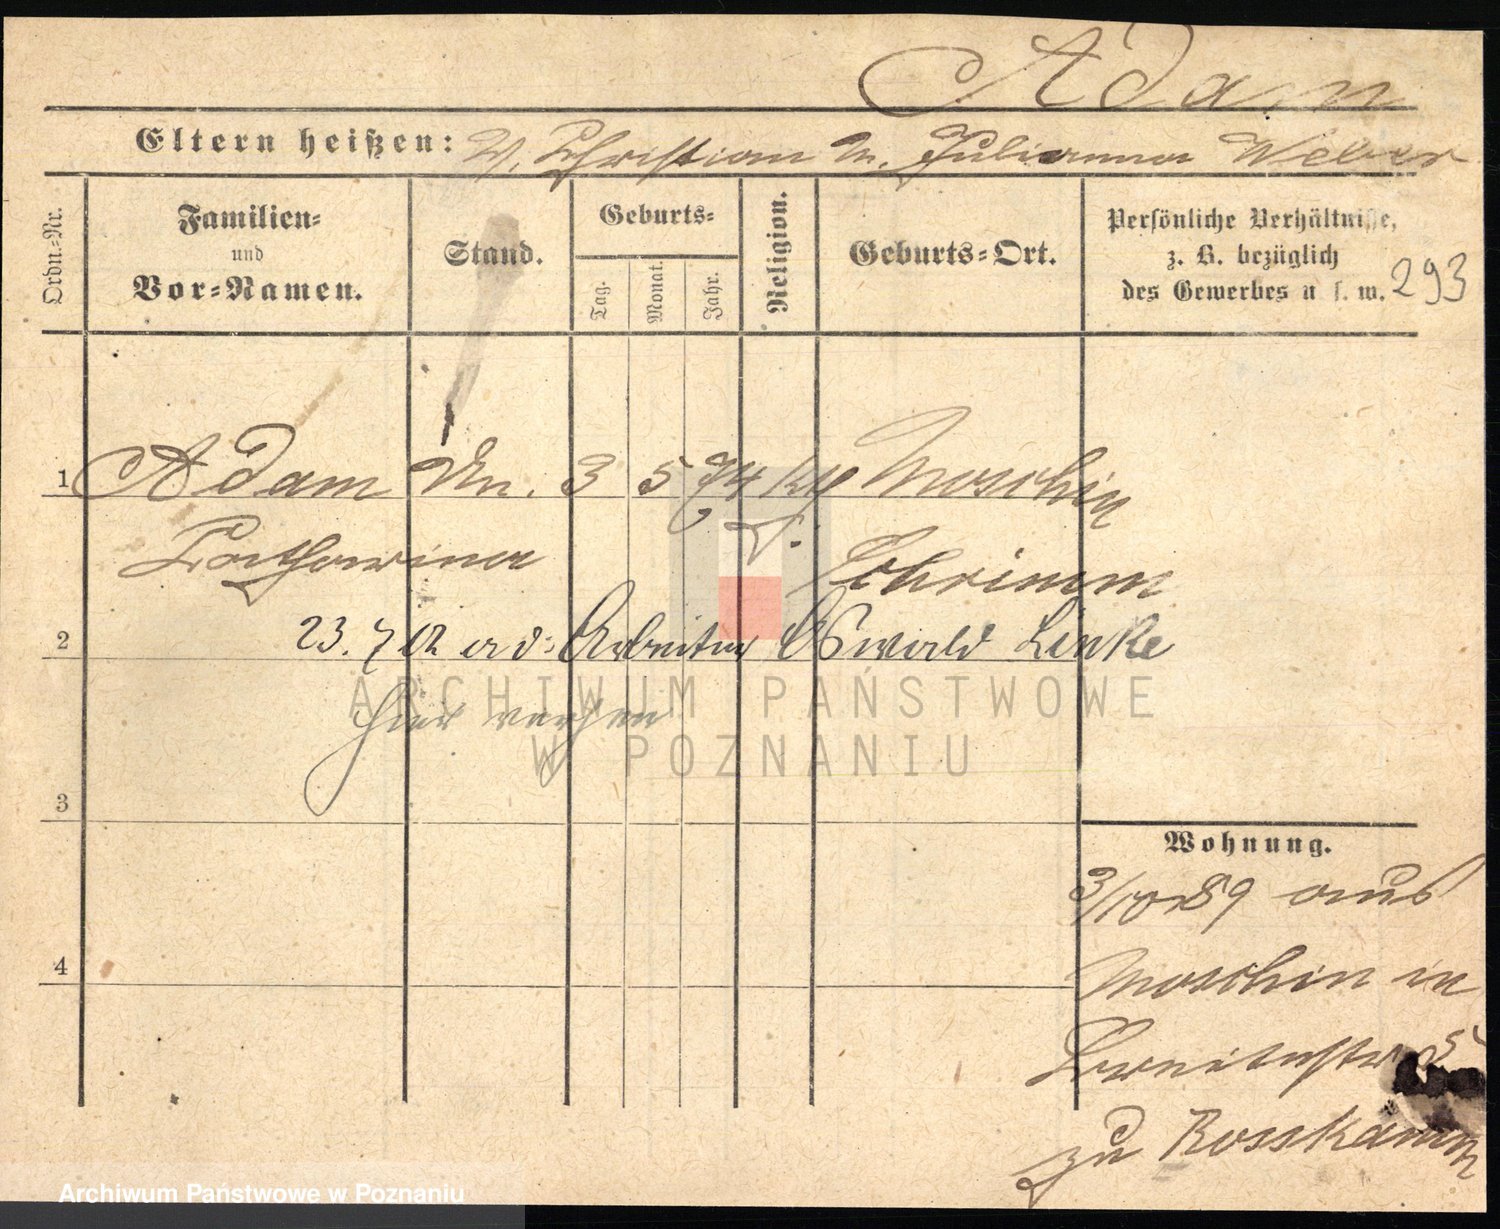 Adam
Eltern heißen: V. Christian u. Julianna Weber
Ordn.-Nr.
Familien-
und
Vor-Namen.
Stand.
Geburts-
Tag.
Monat.
Jahr.
Religion.
Geburts-Ort.
Persönliche Verhältnisse,
z. B. bezüglich
des Gewerbes u s. w.
293
1 Adam 3 5 74 Moschin
Catharina Schrimm
2 23. 7 Arbeiter Oswald Linke
hier
ARCHIWUM PAŃSTWOWE
W POZNANIU
3
Wohnung.
3/10 89 aus
4 Moschin in
5
zu Rosskamm
Archiwum Państwowe w Poznaniu